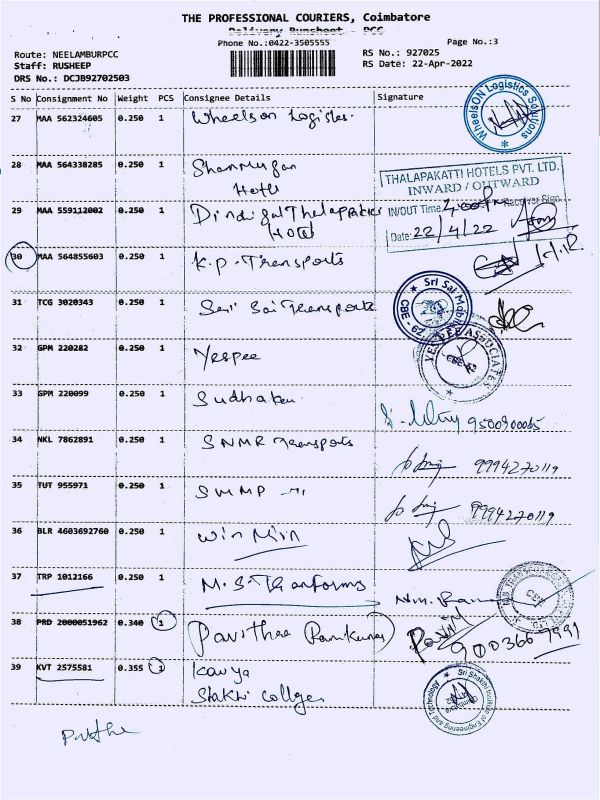 THE PROFESSIONAL COURIERS, Coimbatore
Delivery Runsheet - PCC
Phone No.:0422-3505555
Page No.:3
Route: NEELAMBURPCC
Staff: RUSHEEP
DRS No.: DCJB92702503
RS No.: 927025
RS Date: 22-Apr-2022
S No Consignment No Weight PCS Consignee Details Signature
27 MAA 562324605 0.250 1 Wheelson Logistics.
WheelsON Logistics Solutions
28 MAA 564338285 0.250 1 Shanmugan
Hotel
THALAPAKATTI HOTELS PVT. LTD.
INWARD / OUTWARD
29 MAA 559112002 0.250 1 Dindigul Thalapakker
Hotel
IN/OUT Time: Receiver Sign
Date: 22/4/22
30 MAA 564855603 0.250 1 K.P-Transports
31 TCG 3020343 0.250 1 Sri Sai Transports
Sri Sai Mobil
CBE - 62
32 GPM 220282 0.250 1 Yespee
YES PEE ASSOCIATES
CBE-62
33 GPM 220099 0.250 1 Sudhakar
9500900065
34 NKL 7862891 0.250 1 SNMR Transports
9994270119
35 TUT 955971 0.250 1 SMMP
9994270119
36 BLR 4603692760 0.250 1 Win Min
37 TRP 1012166 0.250 1 M.S. Tranforms
38 PRD 2000051962 0.340 1 Pavithra Ramkumar
9003667991
39 KVT 2575581 0.355 1 Kavya
Shakti College
Sri Shakthi Institute of Engineering and Technology